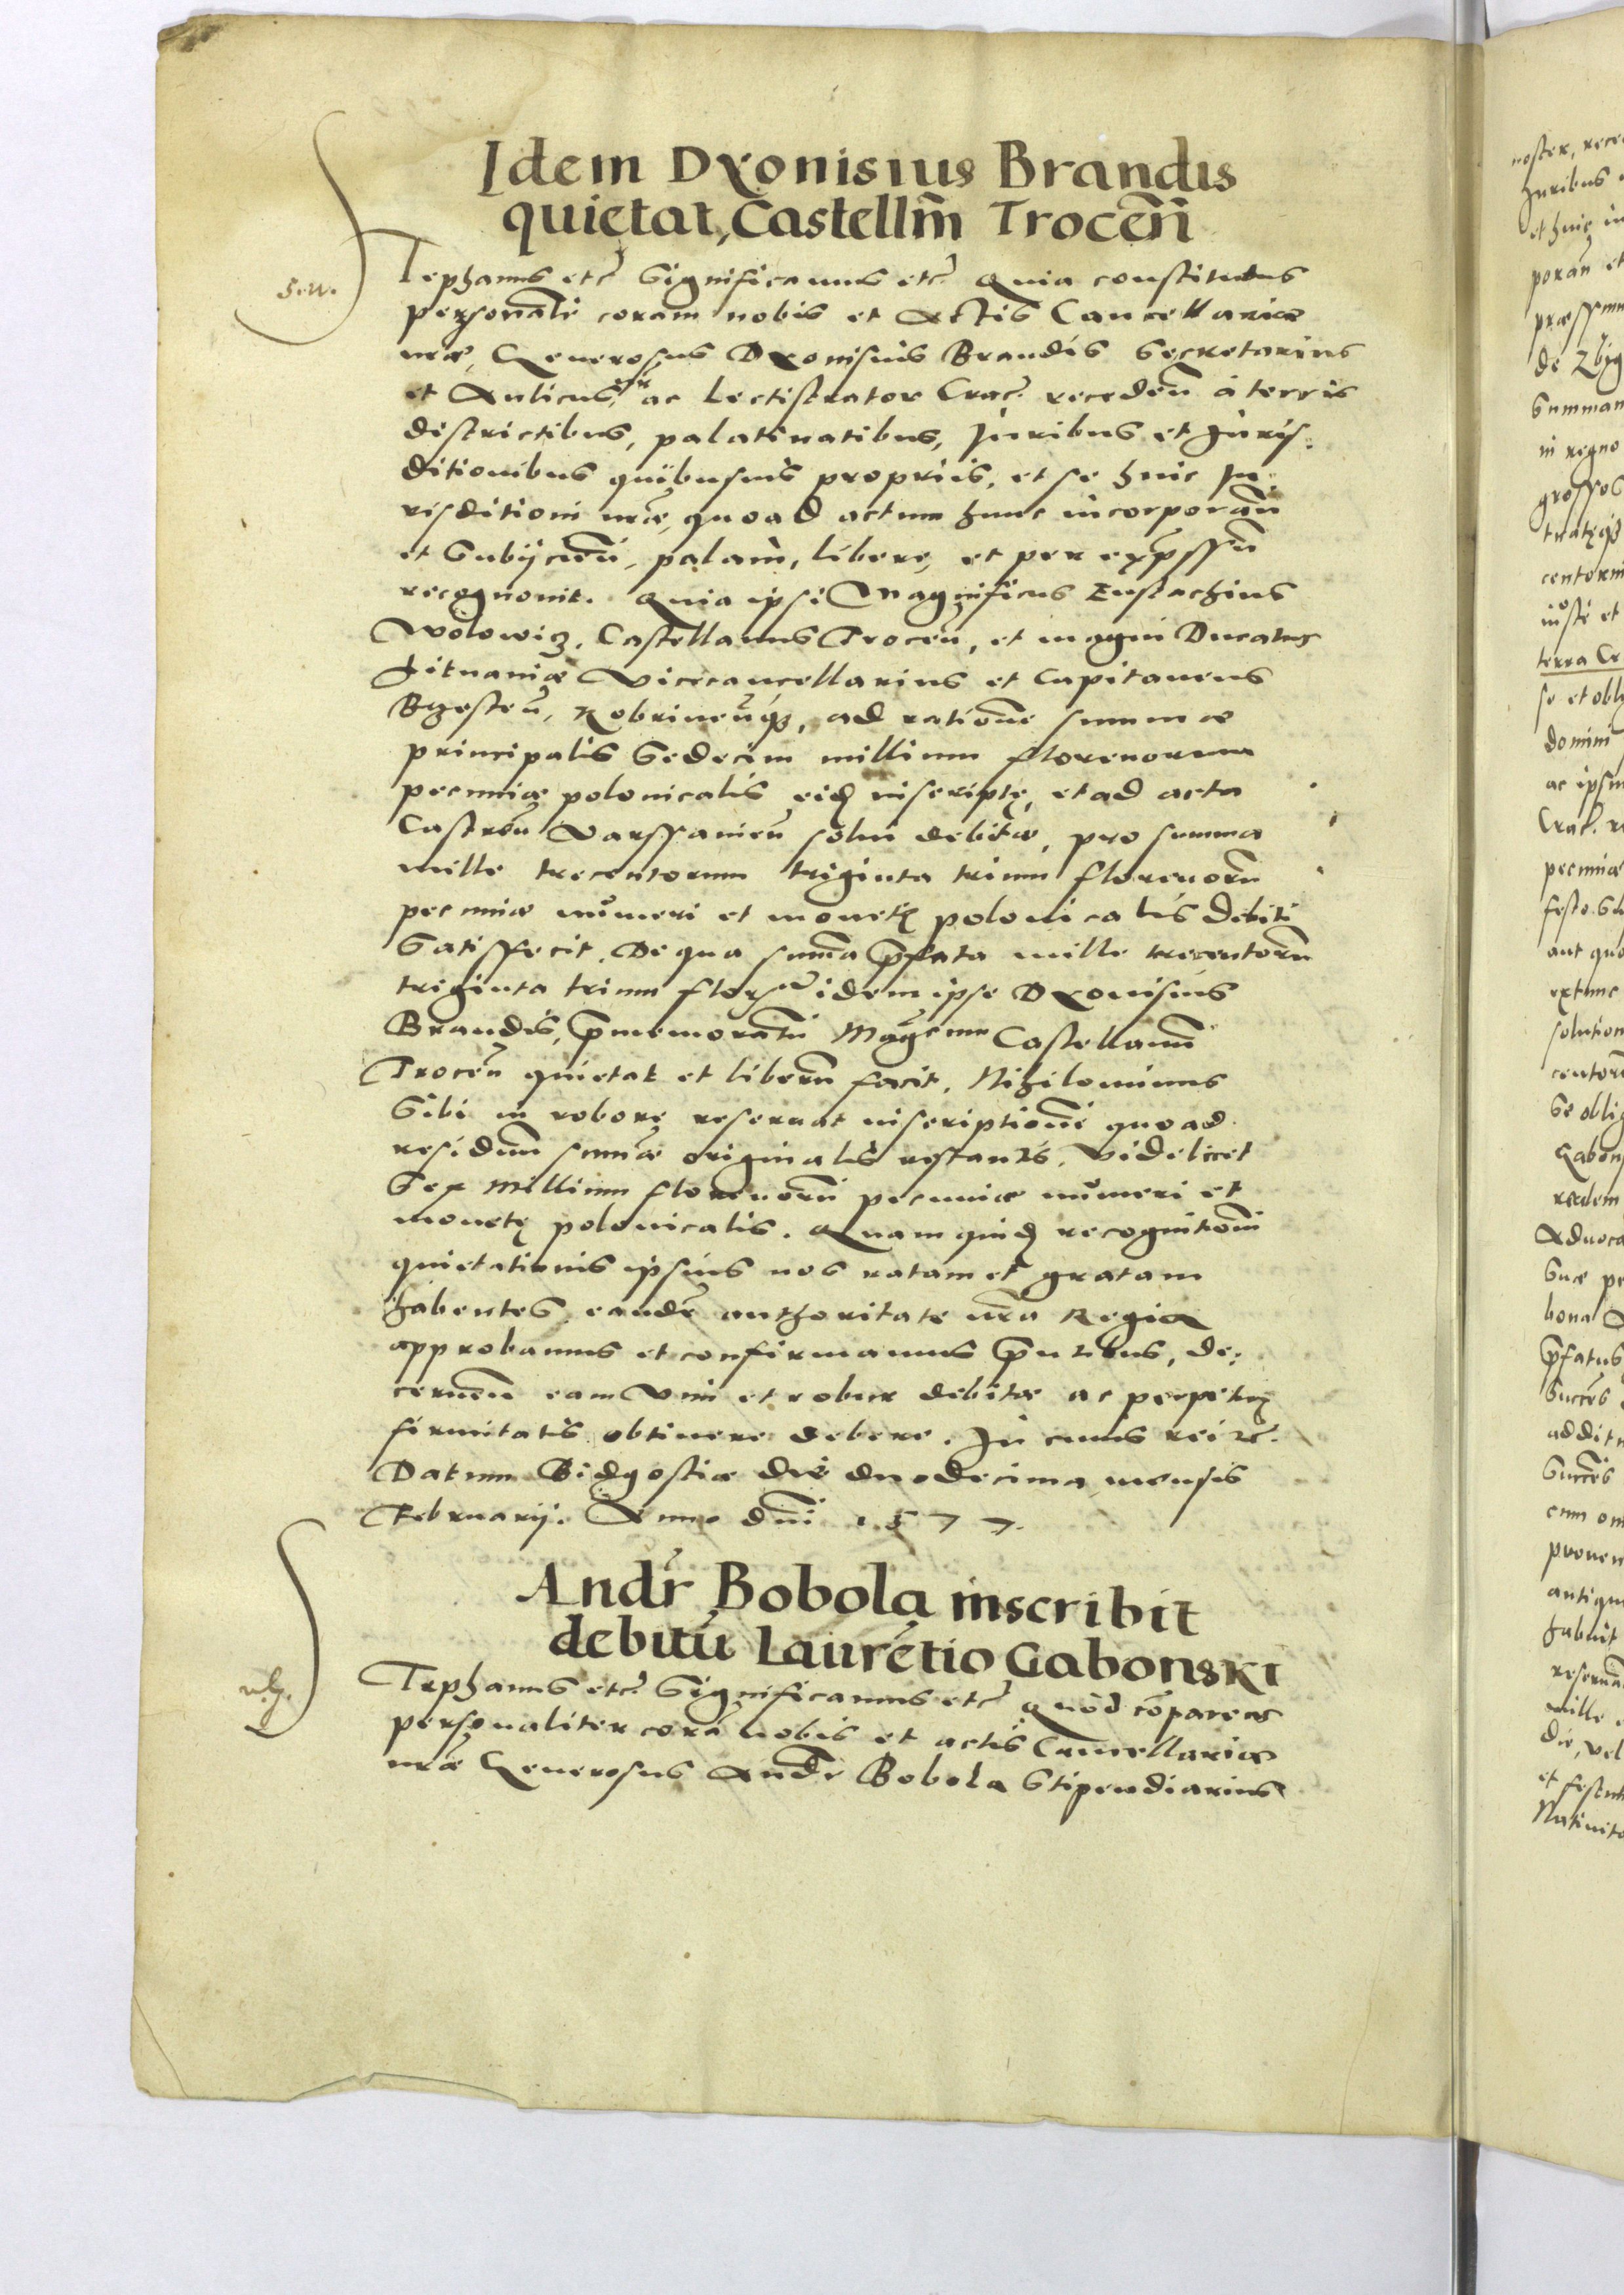 Idem Dyonisius Brandis
quietat, Castellm̄ Trocen̄
S. w.
Stephanus etc̃ Significamus etc̃ Quia constitutus
personali coram nobis et Actis Cancellariæ
nr̃æ, Generosus Dyonisius Brandis Secretarius
et Aulicus, nr̃ ac Lectistrator Crac̃. receden̄ à terris
districtibus, palatinatibus, Juribus et Juris:
ditionibus quibusuis propriis, et se huic Ju:
risditioni nr̃æ, quoad actum hunc incorporan̄
et Subijcien̄, palam, libere, et per exp̃ssum̄
recognouit. Quia ipsi Magnificus Eustachius
Wolowicz, Castellanus Trocen̄, et magni Ducatus
Lituaniæ Vicecancellarius et Capitaneus
Brzesten̄, Kobrinen̄qȝ, ad rationē summæ
principalis Sedecim millium florenorum
pecuniæ polonicalis eidē inscriptę, et ad acta
Castren̄ Varssauien̄ solui debitæ, pro summa
mille trecentorum triginta trium florenorū
pecuniæ numeri et monetę polonicalis debiti
Satisfecit. De qua summa p̃fata mille trecentorū
triginta trium flor̃ idem ipse Dyonisius
Brandis, p̃memoratū Mag̃cum Castellanū
Trocen̄ quietat et liberū facit. Nihilominus
Sibi in robore reseruat inscriptionē quoad
residuū summæ originalis restantis. Videlicet
Sex Millium florenorū pecuniæ numeri et
monetę polonicalis. Quam quidē recognitionē
quietationis ipsius nos ratam et gratam
habentes, eandē authoritate nr̃a Regia
approbamus et confirmamus p̃ntibus, de:
cernen̄ eam vim et robur debitæ ac perpetuę
firmitatis obtinere debere. In cuius rei etc̃.
Datum Bidgostiæ die duodecima mensis
Februarij. Anno dñi 1577.
Andr̃ Bobola inscribit
debitū Laurētio Gabonski
Stephanus etc̃ Significamus etc̃ Quod cōparens
personaliter corā nobis et actis Cancellariæ
nr̃æ Generosus Andr̃ Bobola Stipendiarius